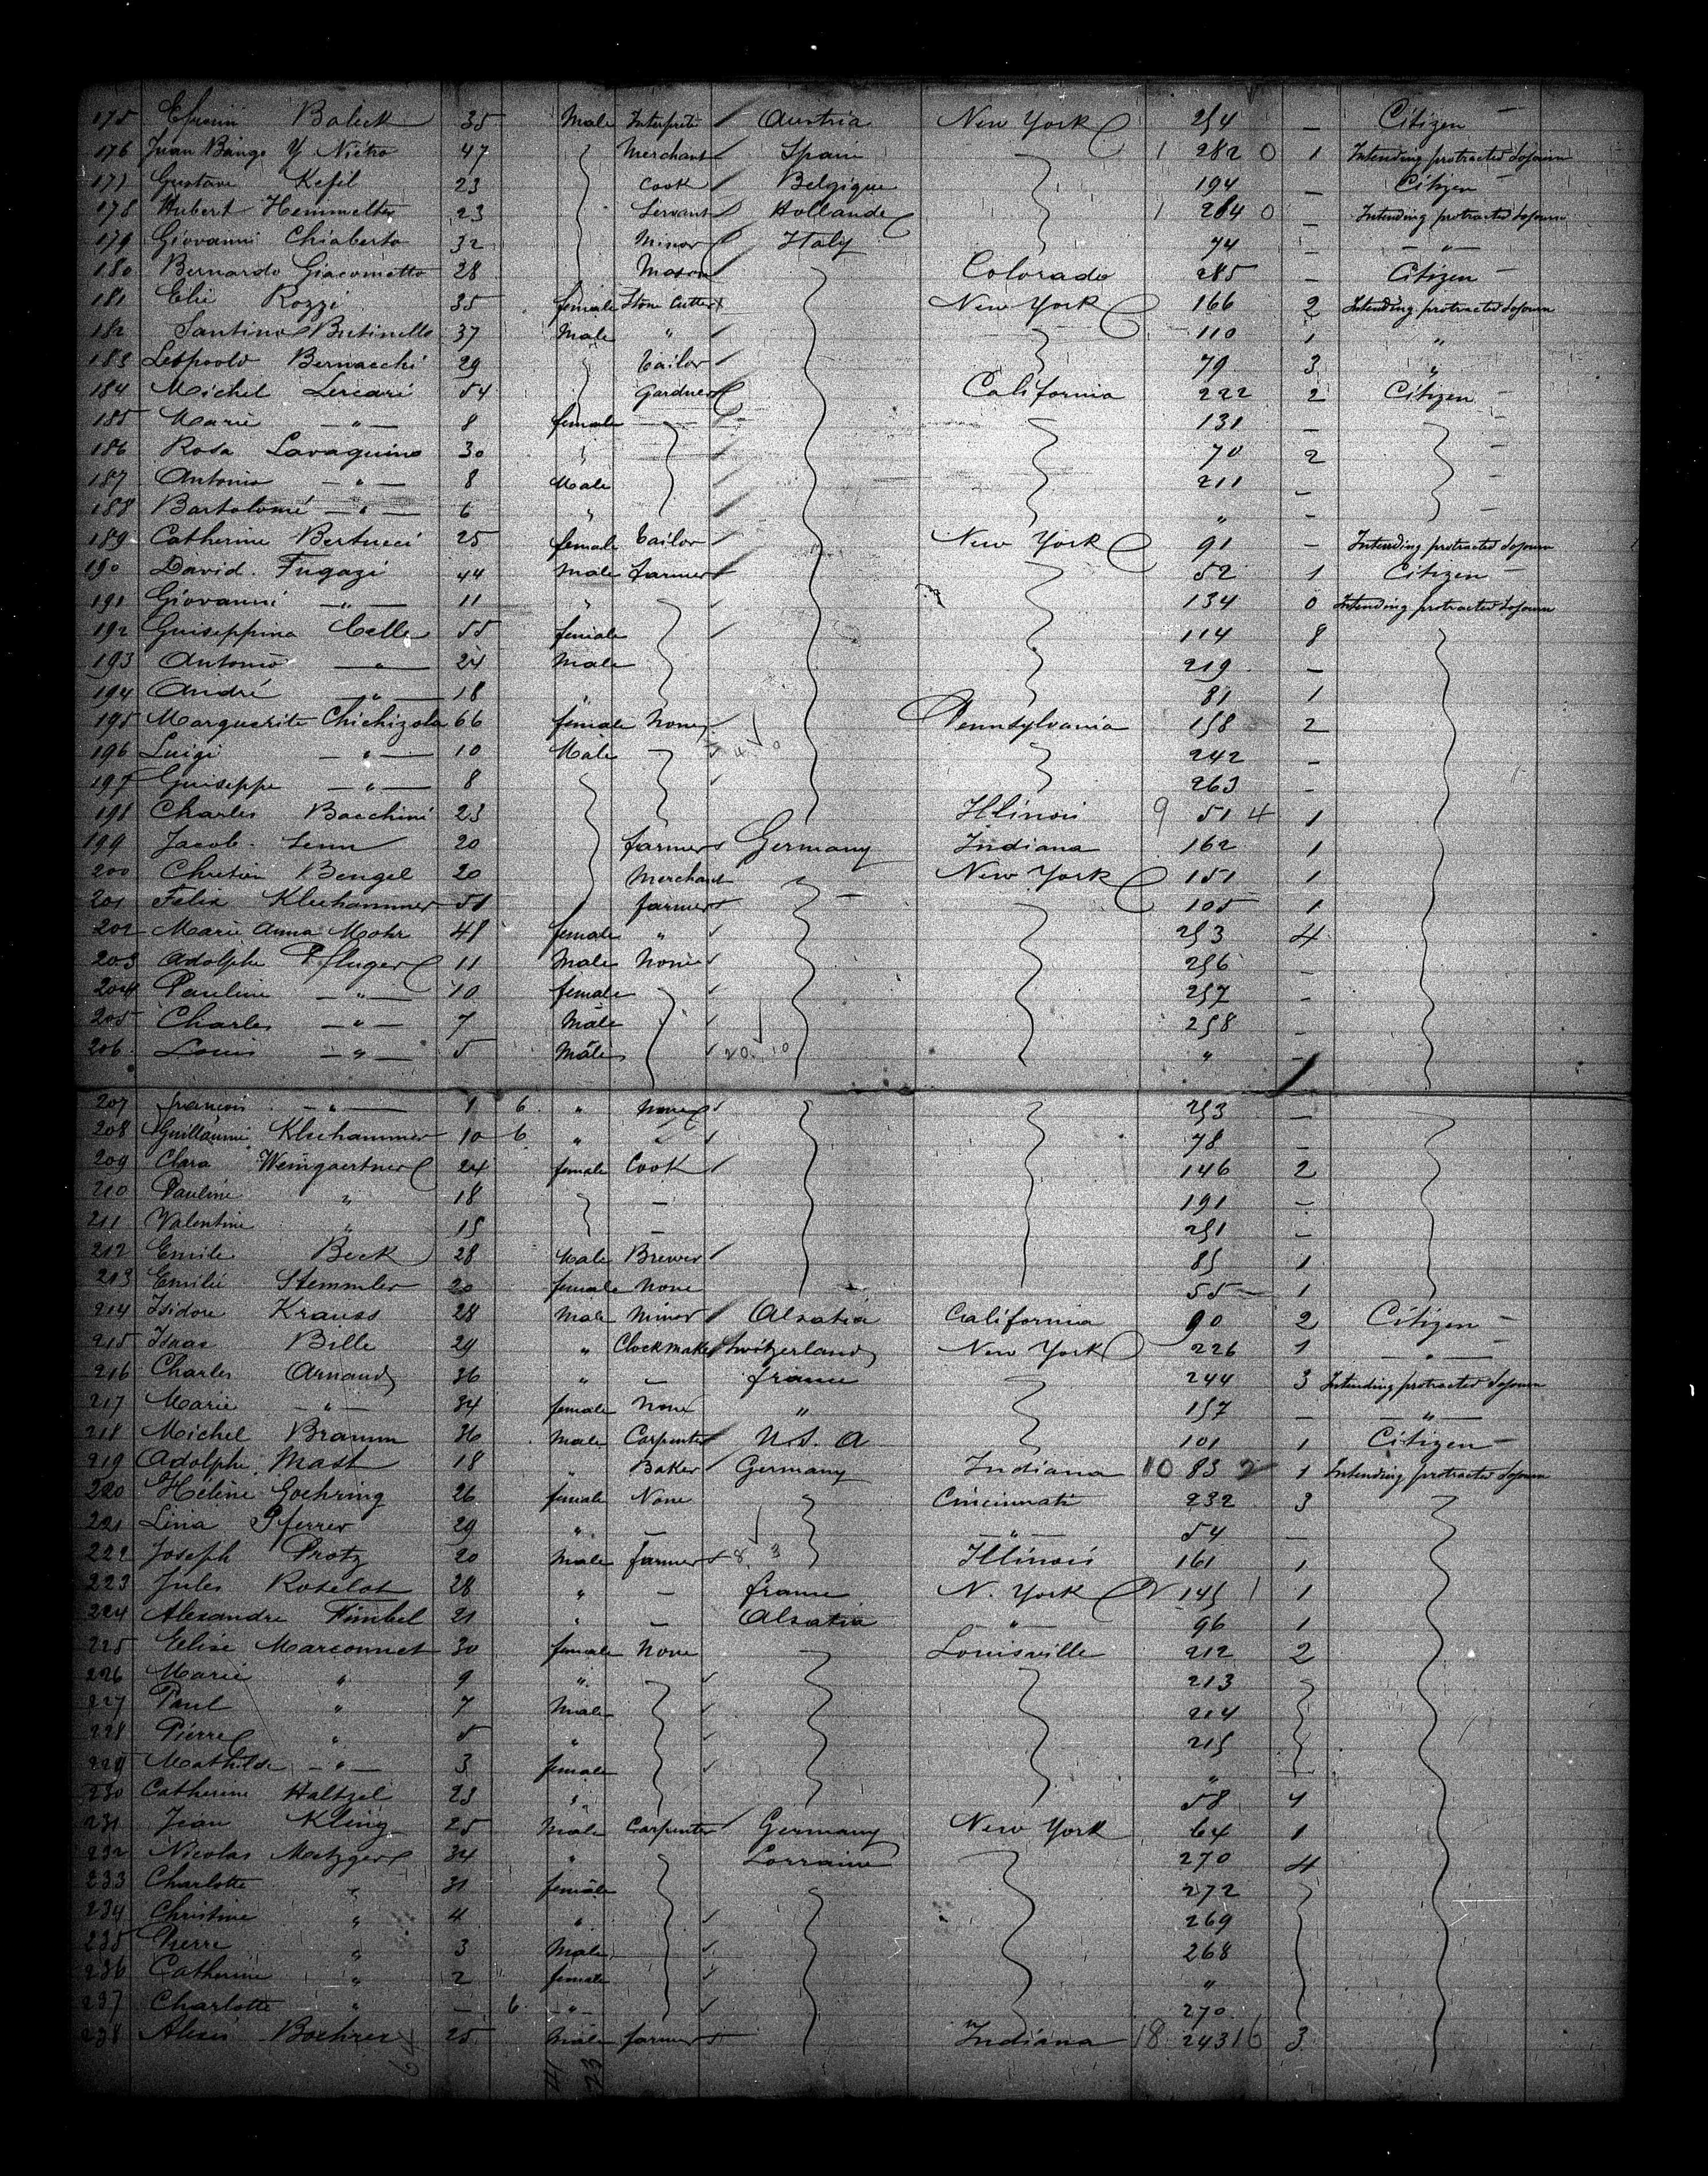 175 Efraim Balick 35 Male Interprete Austria New York 254 — Citizen —
176 Juan Bango Y Niétro 47 Merchant Spain 1 282 0 1 Intending protracted Sojourn
177 Gustave Kefil 23 Cook Belgique 194 — Citizen —
178 Hubert Hemmelter 23 Servant Hollande 1 284 0 — Intending protracted Sojourn
179 Giovanni Chiaberto 32 Minor Italy 74 — — " —
180 Bernardo Giacometto 28 Mason Colorado 285 — Citizen —
181 Elie Rozzi 35 female Stone Cutter New York 166 2 Intending protracted Sojourn
182 Santino Butinello 37 Male " 110 1 "
183 Leopoold Bernacchi 29 Tailor 79 3 "
184 Michel Lercari 54 Gardner California 222 2 Citizen —
185 Marie — " — 8 female — 131 — —
186 Rosa Lavagnino 30 70 2 —
187 Antonio — " — 8 Male 211 — —
188 Bartolomé — " — 6 " " — —
189 Catherine Bertucci 25 female Tailor New York 91 — Intending protracted Sojourn
190 David Fugazi 44 Male farmer 52 1 Citizen —
191 Giovanni — " — 11 " 134 0 Intending protracted Sojourn
192 Guiseppina Celle 55 female 114 8
193 Antonio — " — 24 Male 219 —
194 André — " — 18 " 81 1
195 Marguerite Chichizola 66 female None Pennsylvania 158 2
196 Luigi — " — 10 Male 242 —
197 Guiseppe — " — 8 263 —
198 Charles Bacchini 23 Illinois 9 51 4 1
199 Jacob Senn 20 farmer Germany Indiana 162 1
200 Chretien Bengel 20 Merchant New York 151 1
201 Felix Kleehammer 51 farmer 105 1
202 Marie Anna Mohr 48 female " 253 4
203 Adolphe Pfluger 11 Male None 256 —
204 Pauline — " — 10 female 257 —
205 Charles — " — 7 Male 258 —
206 Louis — " — 5 Male 20 10 " —
207 francois — " — 1 6 " None 253 —
208 Guillaume Kleehammer 10 6 " 78 —
209 Clara Weingaertner 24 female Cook 146 2
210 Pauline " 18 — 191 —
211 Valentine " 15 — 251 —
212 Emile Beck 28 Male Brewer 85 1
213 Emilie Stemmler 20 female None 55 — 1
214 Isidore Krauss 28 Male Minor Alsatia California 90 2 Citizen —
215 Isaac Bille 29 " Clockmaker Switzerland New York 226 1 — " —
216 Charles Arnaud 36 " — france 244 3 Intending protracted Sojourn
217 Marie — " — 34 female None " 157 — — " —
218 Michel Bramm 36 Male Carpenter U.S. A 101 1 Citizen —
219 Adolphe Mast 18 " Baker Germany Indiana 10 83 2 1 Intending protracted Sojourn
220 Hélène Goehring 26 female None Cincinnati 232 3
221 Lina Pferrer 29 " — — " — 54 —
222 Joseph Protz 20 Male farmer 8 3 Illinois 161 1
223 Jules Roselot 28 " — france N. York 2 145 1 1
224 Alexandre Fimbel 21 " — Alsatia " 96 1
225 Elise Marconnet 30 female None Louisville 212 2
226 Marie " 9 " 213
227 Paul " 7 Male 214
228 Pierre " 5 " 215
229 Mathilde — " — 3 female " —
230 Catherine Haltzel 23 " 58 4
231 Jean Kling 25 Male Carpenter Germany New York 64 1
232 Nicolas Metzger 34 " Lorraine 270 4
233 Charlotte " 31 female 272
234 Christine " 4 " 269
235 Pierre " 3 Male 268
236 Catherine " 2 female "
237 Charlotte " — 6 — " — 270
238 Alexis Boehrer 25 Male farmer Indiana 18 243 16 3
64 41 23